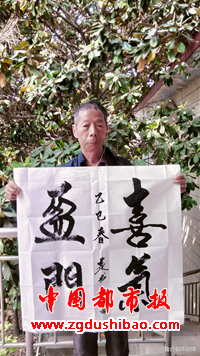 喜氣
盈門
乙巳春
中国都市报
www.zgdushibao.com